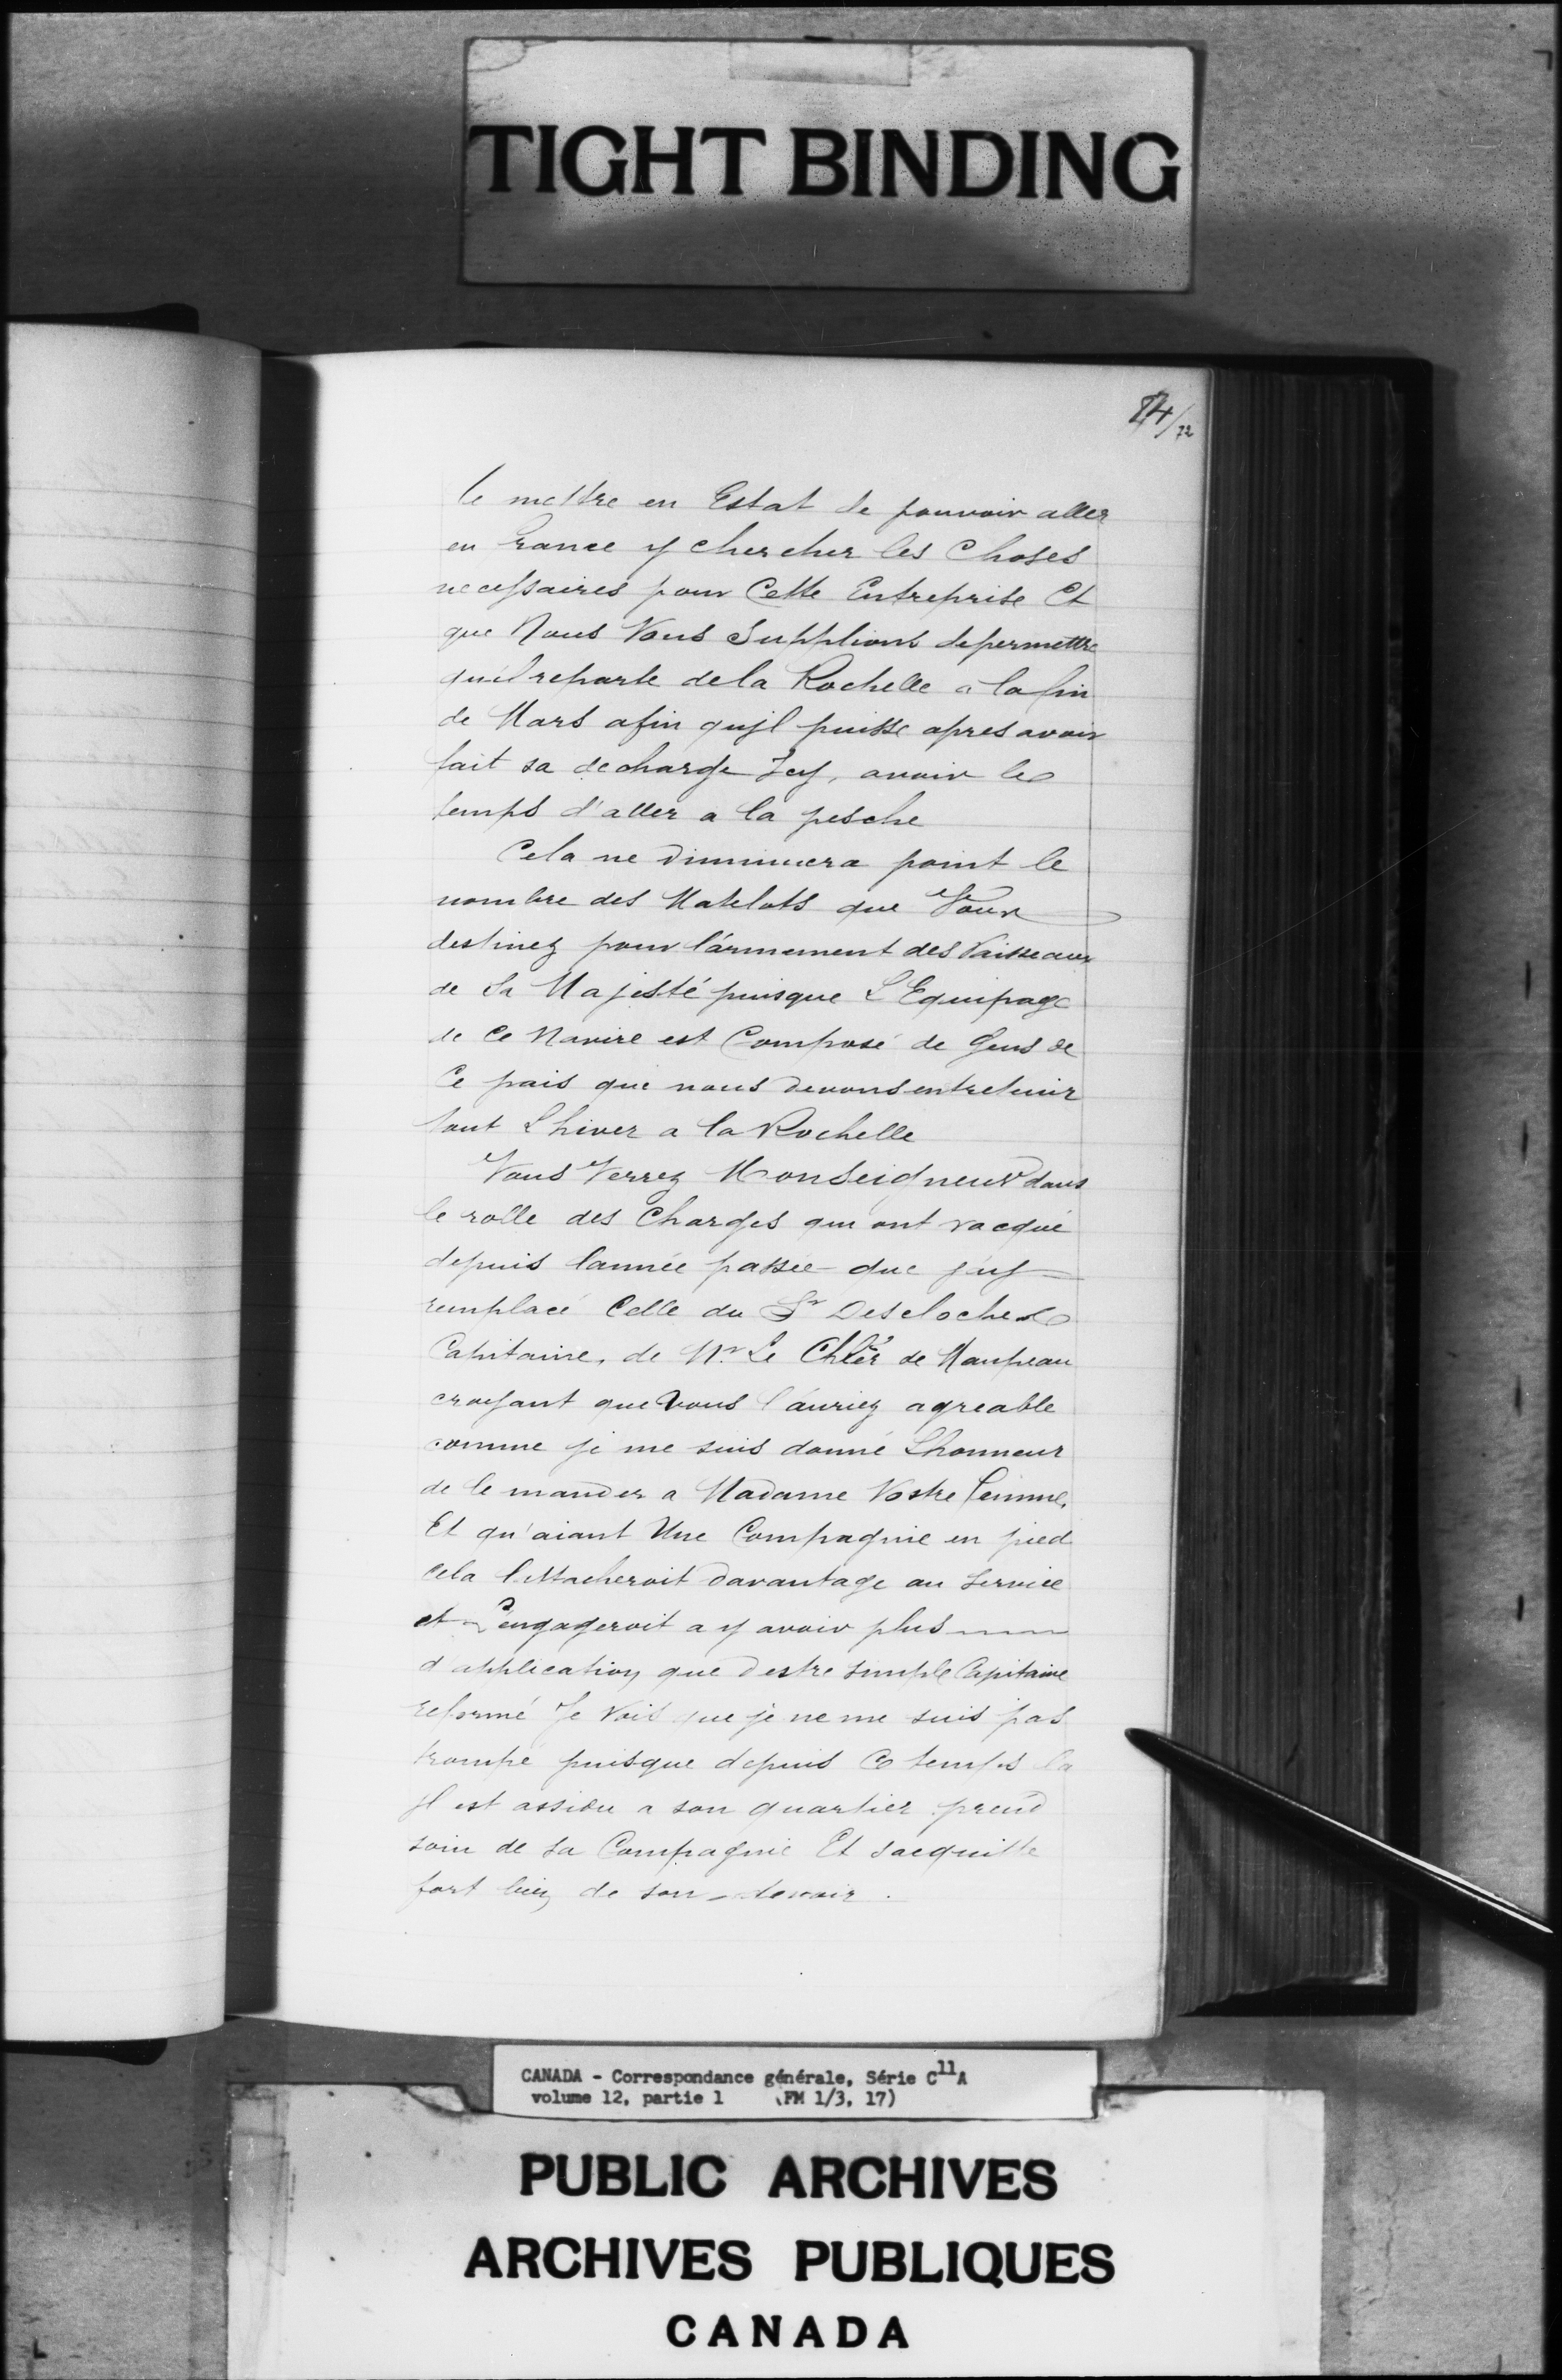 TIGHT BINDING
74/72
le mettre en Estat de pouvoir aller
en france y chercher les Choses
necessaires pour Cette Entreprise Et
que Nous Vous Supplions de permettre
qu'il reparte de la Rochelle a la fin
de Mars afin qu'jl puisse apres avoir
fait sa decharge Jcy, avoir le
temps d'aller a la pesche
Cela ne diminuera point le
nombre des Matelots que Vous
destinez pour l'armement des Vaisseaux
de Sa Majesté puisque L'Equipage
de Ce Navire est Composé de Gens de
Ce pais que nous devons entretenir
tout L'hiver a la Rochelle
Vous Verrez Monseigneur dans
le rolle des Charges qui ont vacqué
depuis l'année passée que j'ay
remplacé Celle du Sr Descloches
Capitaine, de Mr. Le Chler de Maupeau
croyant que vous l'auriez agreable
comme je me suis donné L'honneur
de le mander a Madame Vostre femme,
Et qu'aiant Une Compagnie en pied
cela l'attacheroit davantage au Service
et l'engageroit a y avoir plus
d'application que d'estre simple Capitaine
reformé Je Vois que je ne me suis pas
trompé puisque depuis Ce temps la
Jl est assidu a son quartier prend
soin de sa Compagnie Et s'acquitte
fort bien de son devoir.
CANADA - Correspondance générale, Série C11A
volume 12, partie 1 (FM 1/3, 17)
PUBLIC ARCHIVES
ARCHIVES PUBLIQUES
CANADA